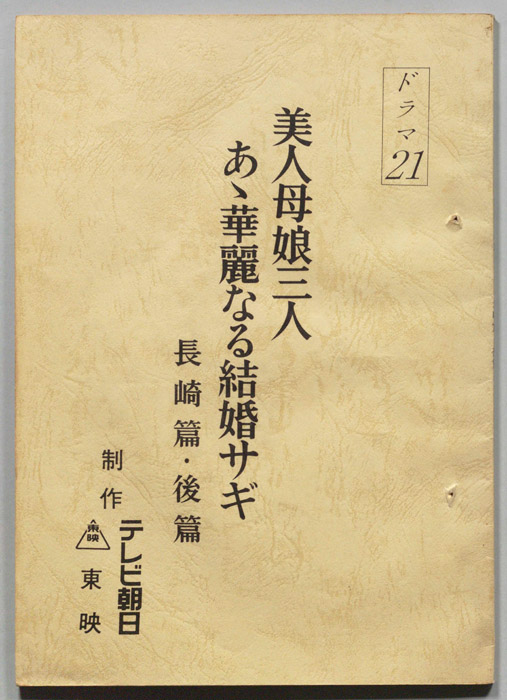 ドラマ21
美人母娘三人
あゝ華麗なる結婚サギ
長崎篇・後篇
制作
テレビ朝日
東映
東映